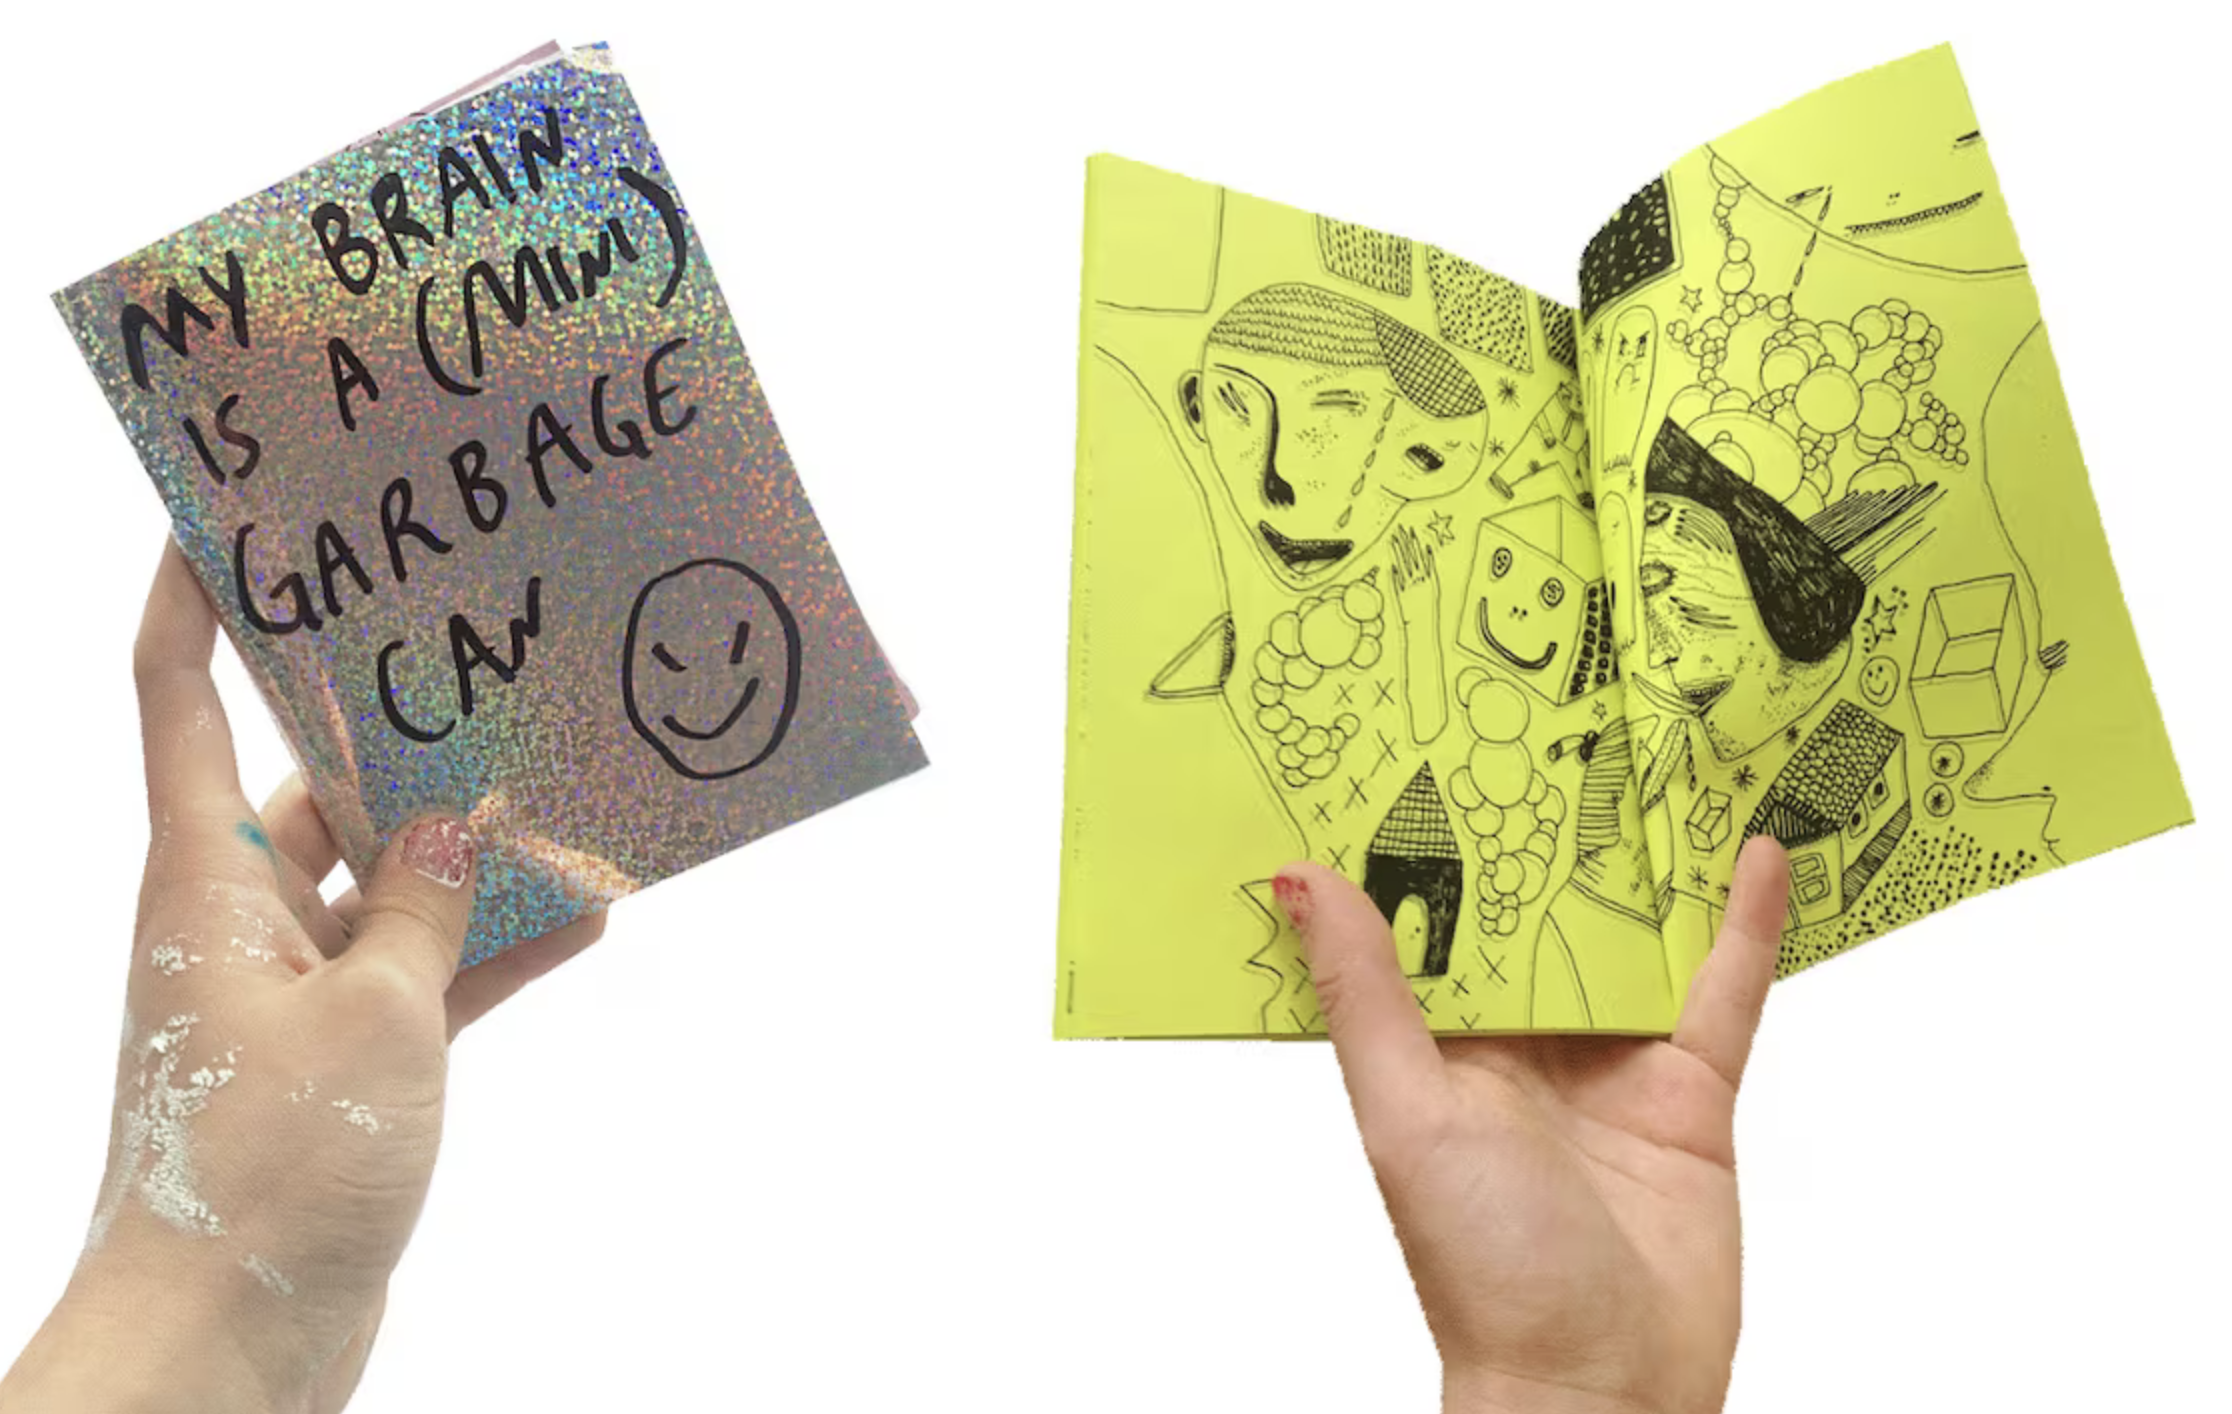 MY BRAIN
IS A (MINI)
GARBAGE
CAN